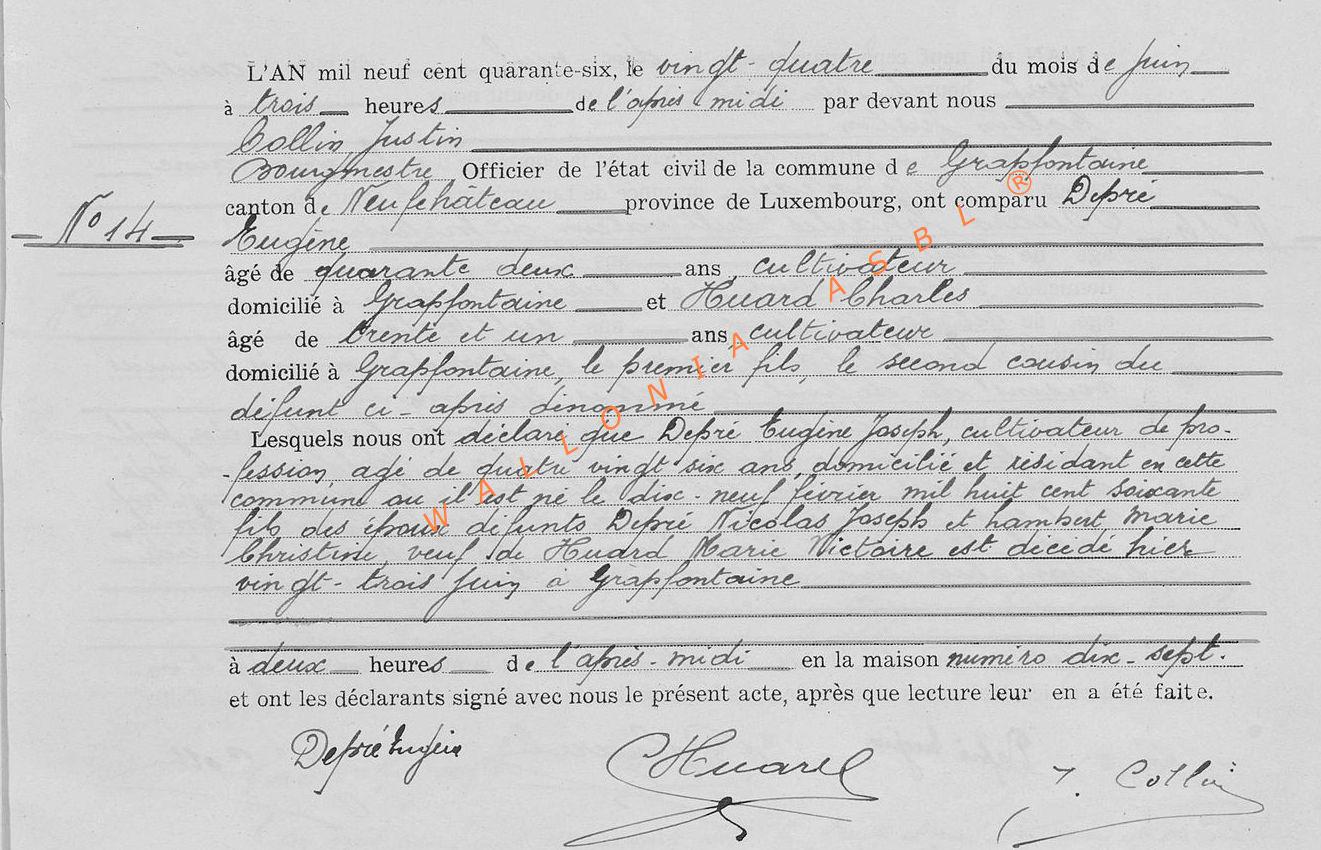 L'AN mil neuf cent quarante-six, le vingt-quatre du mois de juin
à trois heures de l'après midi par devant nous
Collin Justin
Bourgmestre Officier de l'état civil de la commune de Grapfontaine
N° 14
canton de Neufchâteau province de Luxembourg, ont comparu Depré
Eugène
âgé de quarante deux ans, cultivateur
domicilié à Grapfontaine et Huard Charles
âgé de trente et un ans, cultivateur
domicilié à Grapfontaine, le premier fils, le second cousin du
défunt ci-après dénommé
Lesquels nous ont déclaré que Depré Eugène Joseph, cultivateur de pro-
-fession, agé de quatre vingt six ans, domicilié et résidant en cette
commune ou il est né le dix-neuf février mil huit cent soixante
fils des époux défunts Depré Nicolas Joseph et Lambert Marie
Christine, veuf de Huard Marie Victoire est décédé hier
vingt-trois juin à Grapfontaine
à deux heures de l'après-midi en la maison numéro dix-sept.
et ont les déclarants signé avec nous le présent acte, après que lecture leur en a été faite.
Depré Eugène
CHuard
J. Collin
WALLONIA ASBL ®